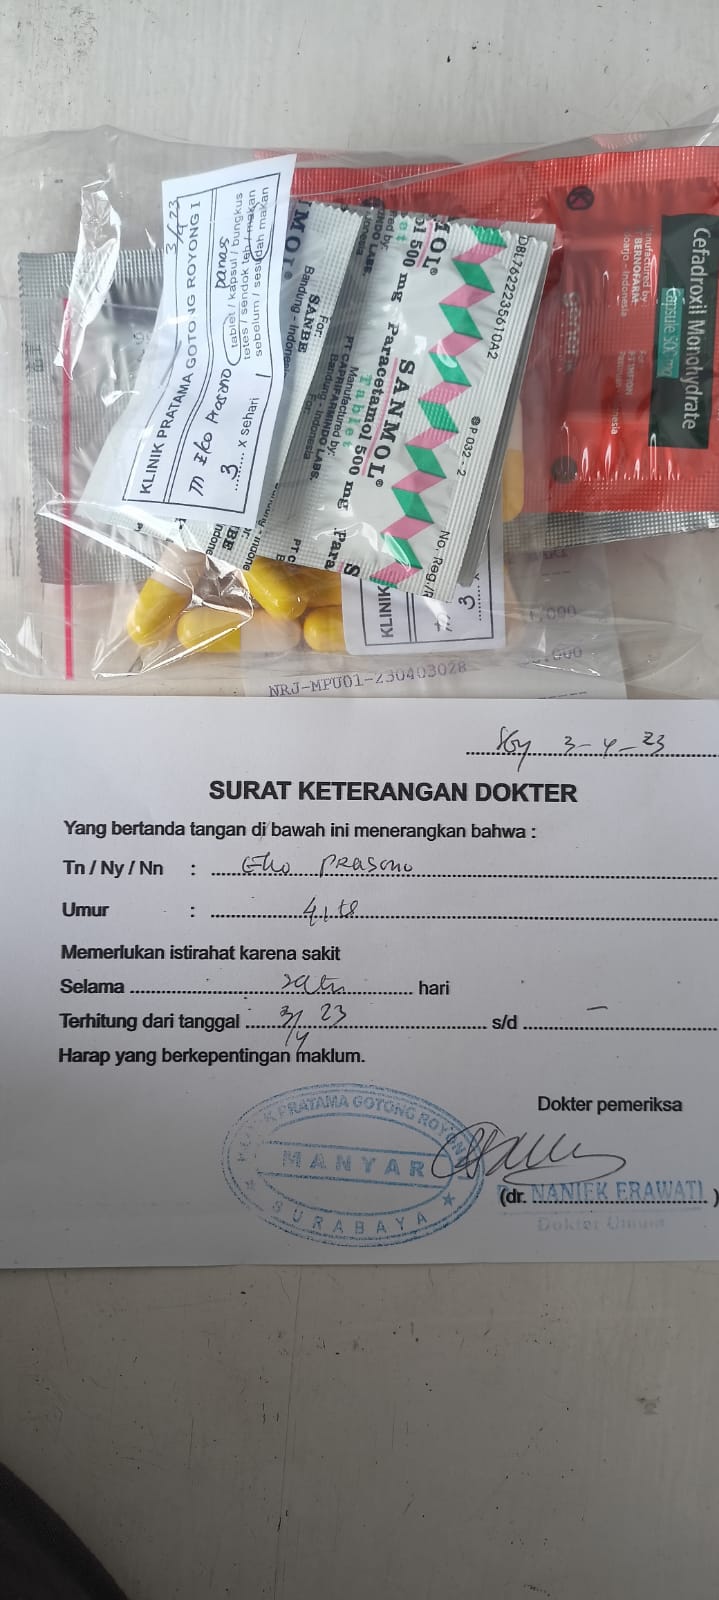 3/4 23
KLINIK PRATAMA GOTONG ROYONG I
m Eko Prasono panas
3 x sehari 1 tablet / kapsul / bungkus
tetes / sendok teh / makan
sebelum / sesudah makan
SANMOL®
Tablet
Paracetamol 500 mg
Manufactured by:
PT CAPRIFARMINDO LABS.
Bandung - Indonesia
For:
SANBE
Bandung - Indonesia
DBL76222235610A2
P 032 - 2
No. Reg./
Cefadroxil Monohydrate
Capsule 500 mg
Manufactured by
BERNOFARM
Sidoarjo - Indonesia
KLINIK
3 x
NRJ-MPU01-230403028
Sby 3-4-23
SURAT KETERANGAN DOKTER
Yang bertanda tangan di bawah ini menerangkan bahwa :
Tn / Ny / Nn : Eko Prasono
Umur : 41 th
Memerlukan istirahat karena sakit
Selama satu hari
Terhitung dari tanggal 3/4 23 s/d –
Harap yang berkepentingan maklum.
Dokter pemeriksa
KLINIK PRATAMA GOTONG ROYONG
MANYAR
SURABAYA
(dr. NANIEK ERAWATI)
Dokter Umum